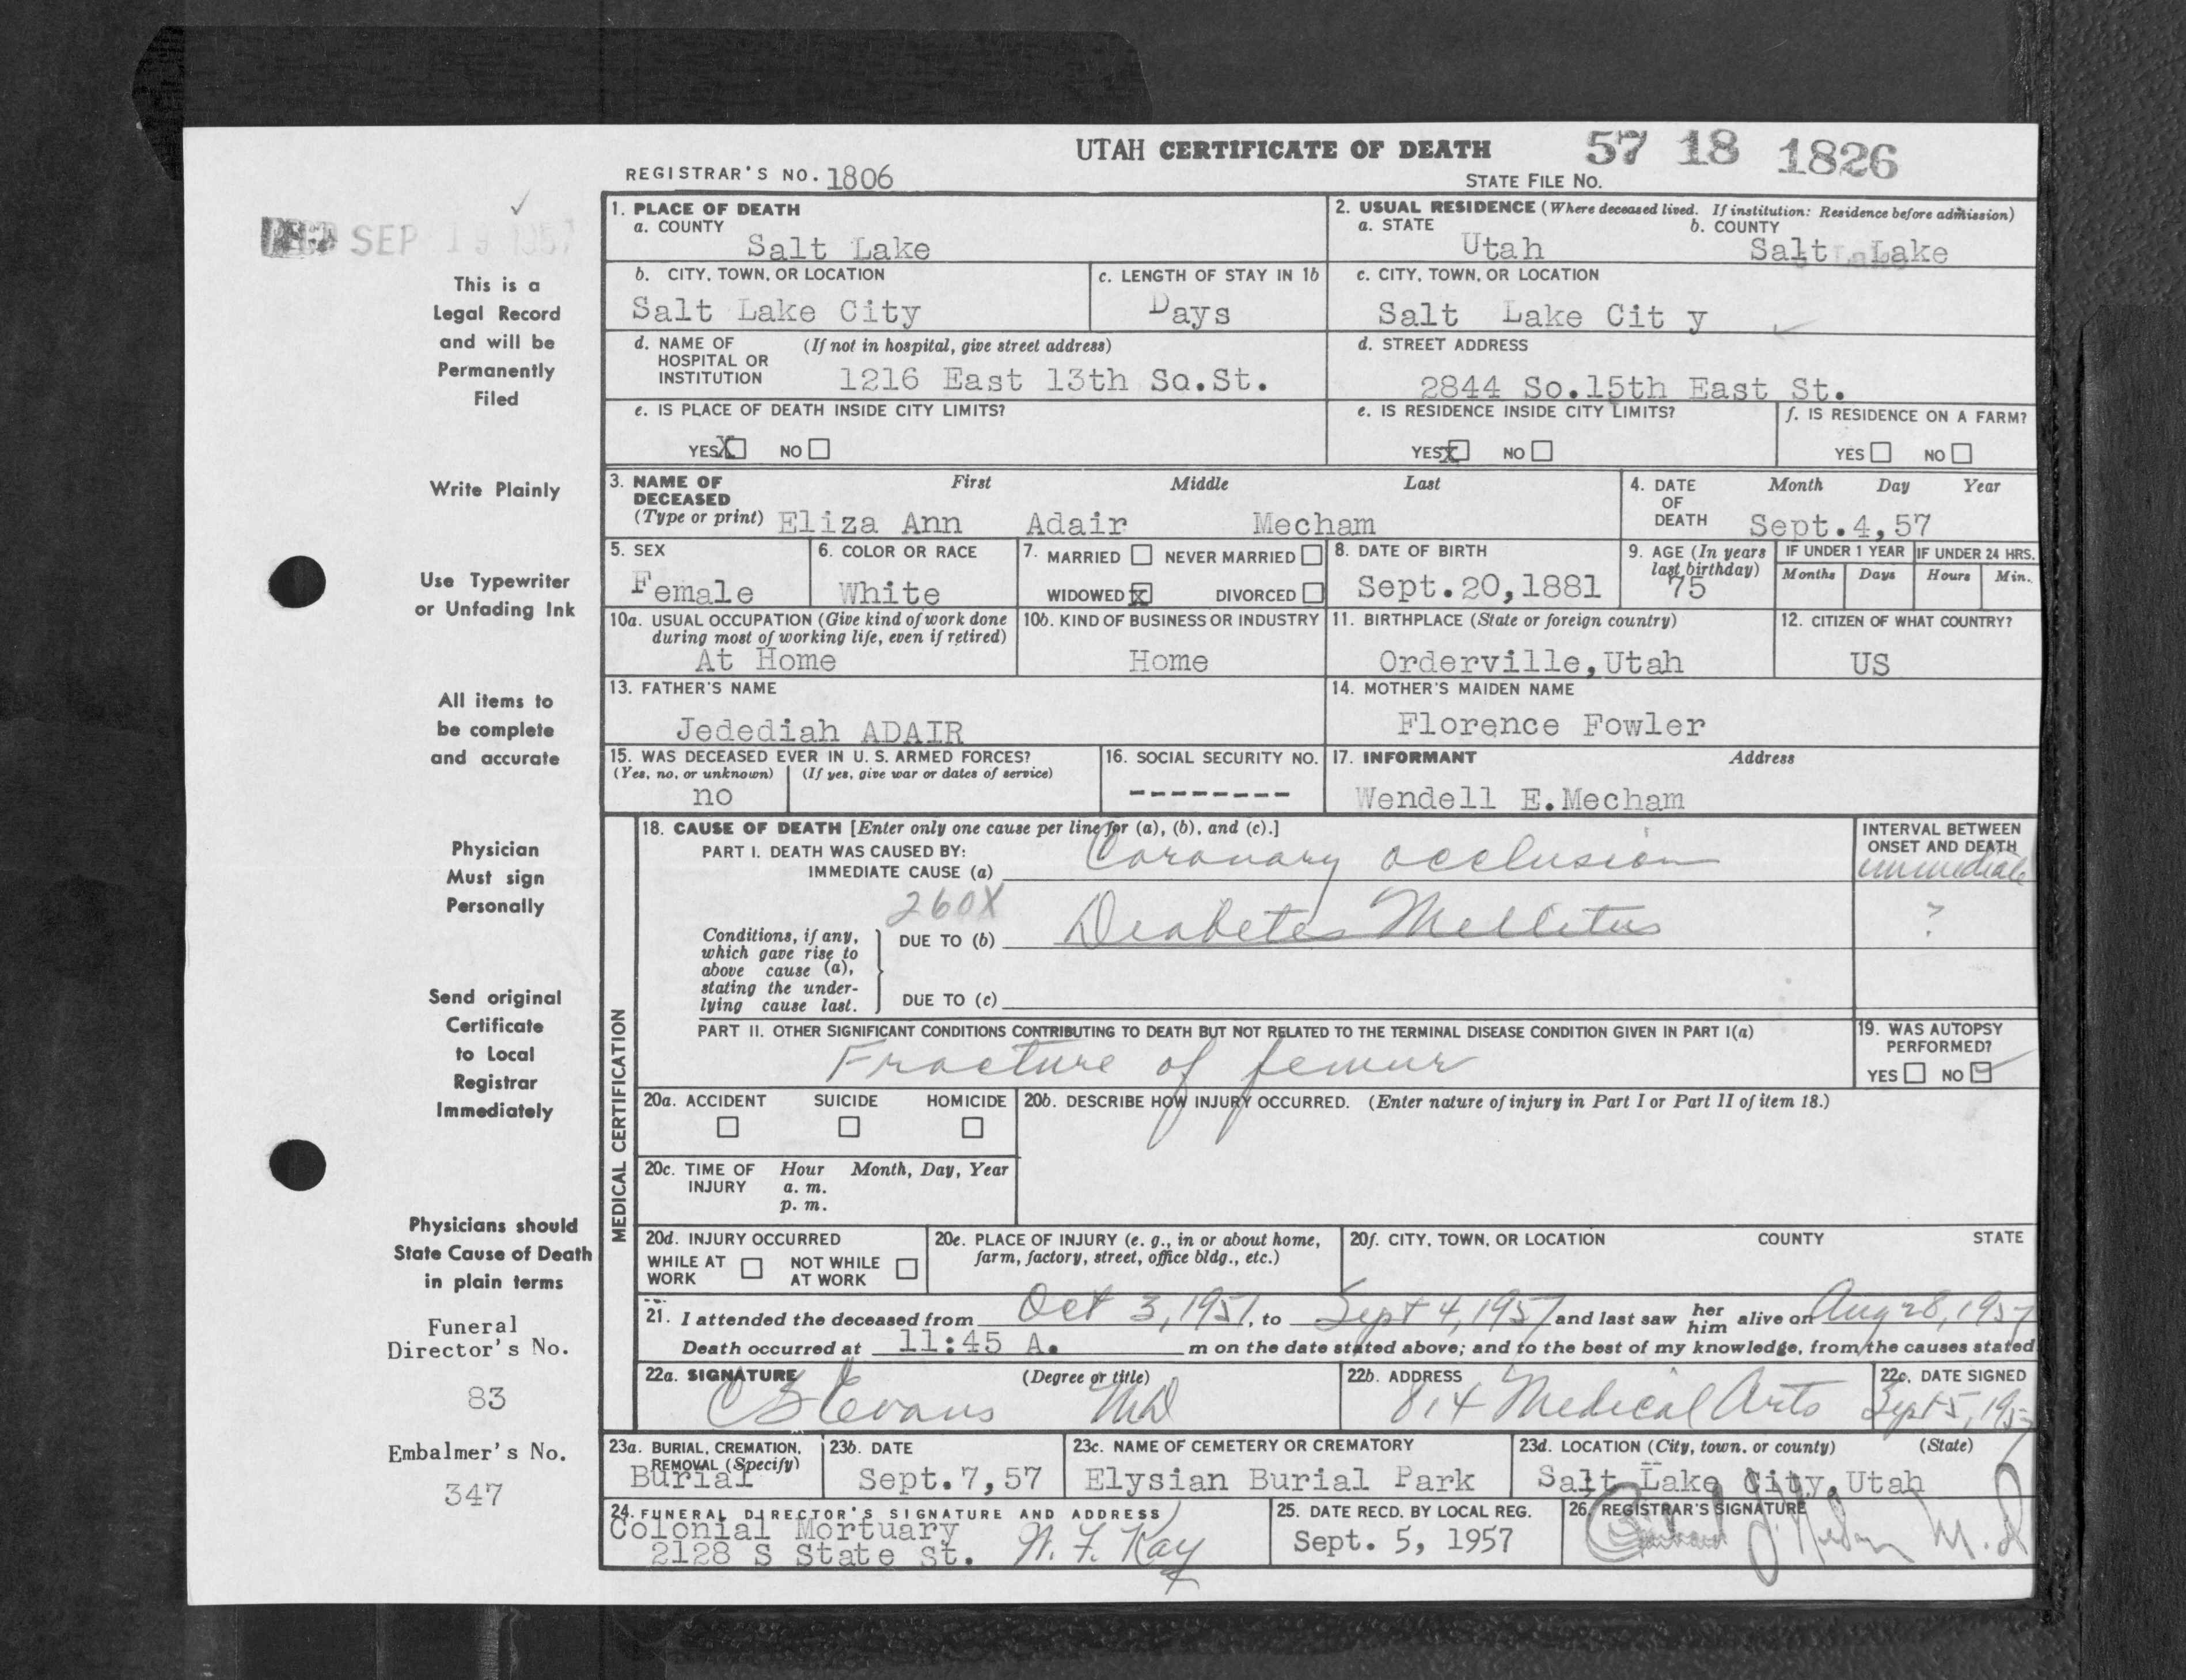 UTAH CERTIFICATE OF DEATH
57 18 1826
REGISTRAR'S NO. 1806
STATE FILE NO.
SEP 19 1957
This is a
Legal Record
and will be
Permanently
Filed
Write Plainly
Use Typewriter
or Unfading Ink
All items to
be complete
and accurate
Physician
Must sign
Personally
Send original
Certificate
to Local
Registrar
Immediately
Physicians should
State Cause of Death
in plain terms
Funeral
Director's No.
83
Embalmer's No.
347
1. PLACE OF DEATH
a. COUNTY
Salt Lake
2. USUAL RESIDENCE (Where deceased lived. If institution: Residence before admission)
a. STATE b. COUNTY
Utah Salt Lake
b. CITY, TOWN, OR LOCATION
Salt Lake City
c. LENGTH OF STAY IN 1b
Days
c. CITY, TOWN, OR LOCATION
Salt Lake Cit y
d. NAME OF (If not in hospital, give street address)
HOSPITAL OR
INSTITUTION 1216 East 13th So.St.
d. STREET ADDRESS
2844 So.15th East St.
e. IS PLACE OF DEATH INSIDE CITY LIMITS?
YES X NO
e. IS RESIDENCE INSIDE CITY LIMITS?
YES X NO
f. IS RESIDENCE ON A FARM?
YES NO
3. NAME OF First Middle Last
DECEASED
(Type or print) Eliza Ann Adair Mecham
4. DATE Month Day Year
OF
DEATH Sept.4,57
5. SEX
Female
6. COLOR OR RACE
White
7. MARRIED NEVER MARRIED
WIDOWED X DIVORCED
8. DATE OF BIRTH
Sept.20,1881
9. AGE (In years
last birthday)
75
IF UNDER 1 YEAR
Months Days
IF UNDER 24 HRS.
Hours Min.
10a. USUAL OCCUPATION (Give kind of work done
during most of working life, even if retired)
At Home
10b. KIND OF BUSINESS OR INDUSTRY
Home
11. BIRTHPLACE (State or foreign country)
Orderville,Utah
12. CITIZEN OF WHAT COUNTRY?
US
13. FATHER'S NAME
Jedediah ADAIR
14. MOTHER'S MAIDEN NAME
Florence Fowler
15. WAS DECEASED EVER IN U. S. ARMED FORCES?
(Yes, no, or unknown) (If yes, give war or dates of service)
no
16. SOCIAL SECURITY NO.
--------
17. INFORMANT Address
Wendell E.Mecham
MEDICAL CERTIFICATION
18. CAUSE OF DEATH [Enter only one cause per line for (a), (b), and (c).]
PART I. DEATH WAS CAUSED BY:
IMMEDIATE CAUSE (a) Coronary occlusion
INTERVAL BETWEEN
ONSET AND DEATH
immediate
260X
Conditions, if any,
which gave rise to
above cause (a),
stating the under-
lying cause last.
DUE TO (b) Diabetes Mellitus
?
DUE TO (c)
PART II. OTHER SIGNIFICANT CONDITIONS CONTRIBUTING TO DEATH BUT NOT RELATED TO THE TERMINAL DISEASE CONDITION GIVEN IN PART I(a)
Fracture of femur
19. WAS AUTOPSY
PERFORMED?
YES NO ✓
20a. ACCIDENT SUICIDE HOMICIDE
20b. DESCRIBE HOW INJURY OCCURRED. (Enter nature of injury in Part I or Part II of item 18.)
20c. TIME OF Hour Month, Day, Year
INJURY a. m.
p. m.
20d. INJURY OCCURRED
WHILE AT NOT WHILE
WORK AT WORK
20e. PLACE OF INJURY (e. g., in or about home,
farm, factory, street, office bldg., etc.)
20f. CITY, TOWN, OR LOCATION COUNTY STATE
21. I attended the deceased from Oct 3, 1951, to Sept 4, 1957 and last saw her him alive on Aug 28, 1957
Death occurred at 11:45 A. m on the date stated above; and to the best of my knowledge, from the causes stated
22a. SIGNATURE (Degree or title)
Evans MD
22b. ADDRESS
814 Medical Arts
22c. DATE SIGNED
Sept 5, 1957
23a. BURIAL, CREMATION,
REMOVAL (Specify)
Burial
23b. DATE
Sept.7,57
23c. NAME OF CEMETERY OR CREMATORY
Elysian Burial Park
23d. LOCATION (City, town, or county) (State)
Salt Lake City,Utah
24. FUNERAL DIRECTOR'S SIGNATURE AND ADDRESS
Colonial Mortuary
2128 S State st. W. F. Kay
25. DATE RECD. BY LOCAL REG.
Sept. 5, 1957
26. REGISTRAR'S SIGNATURE
M.D